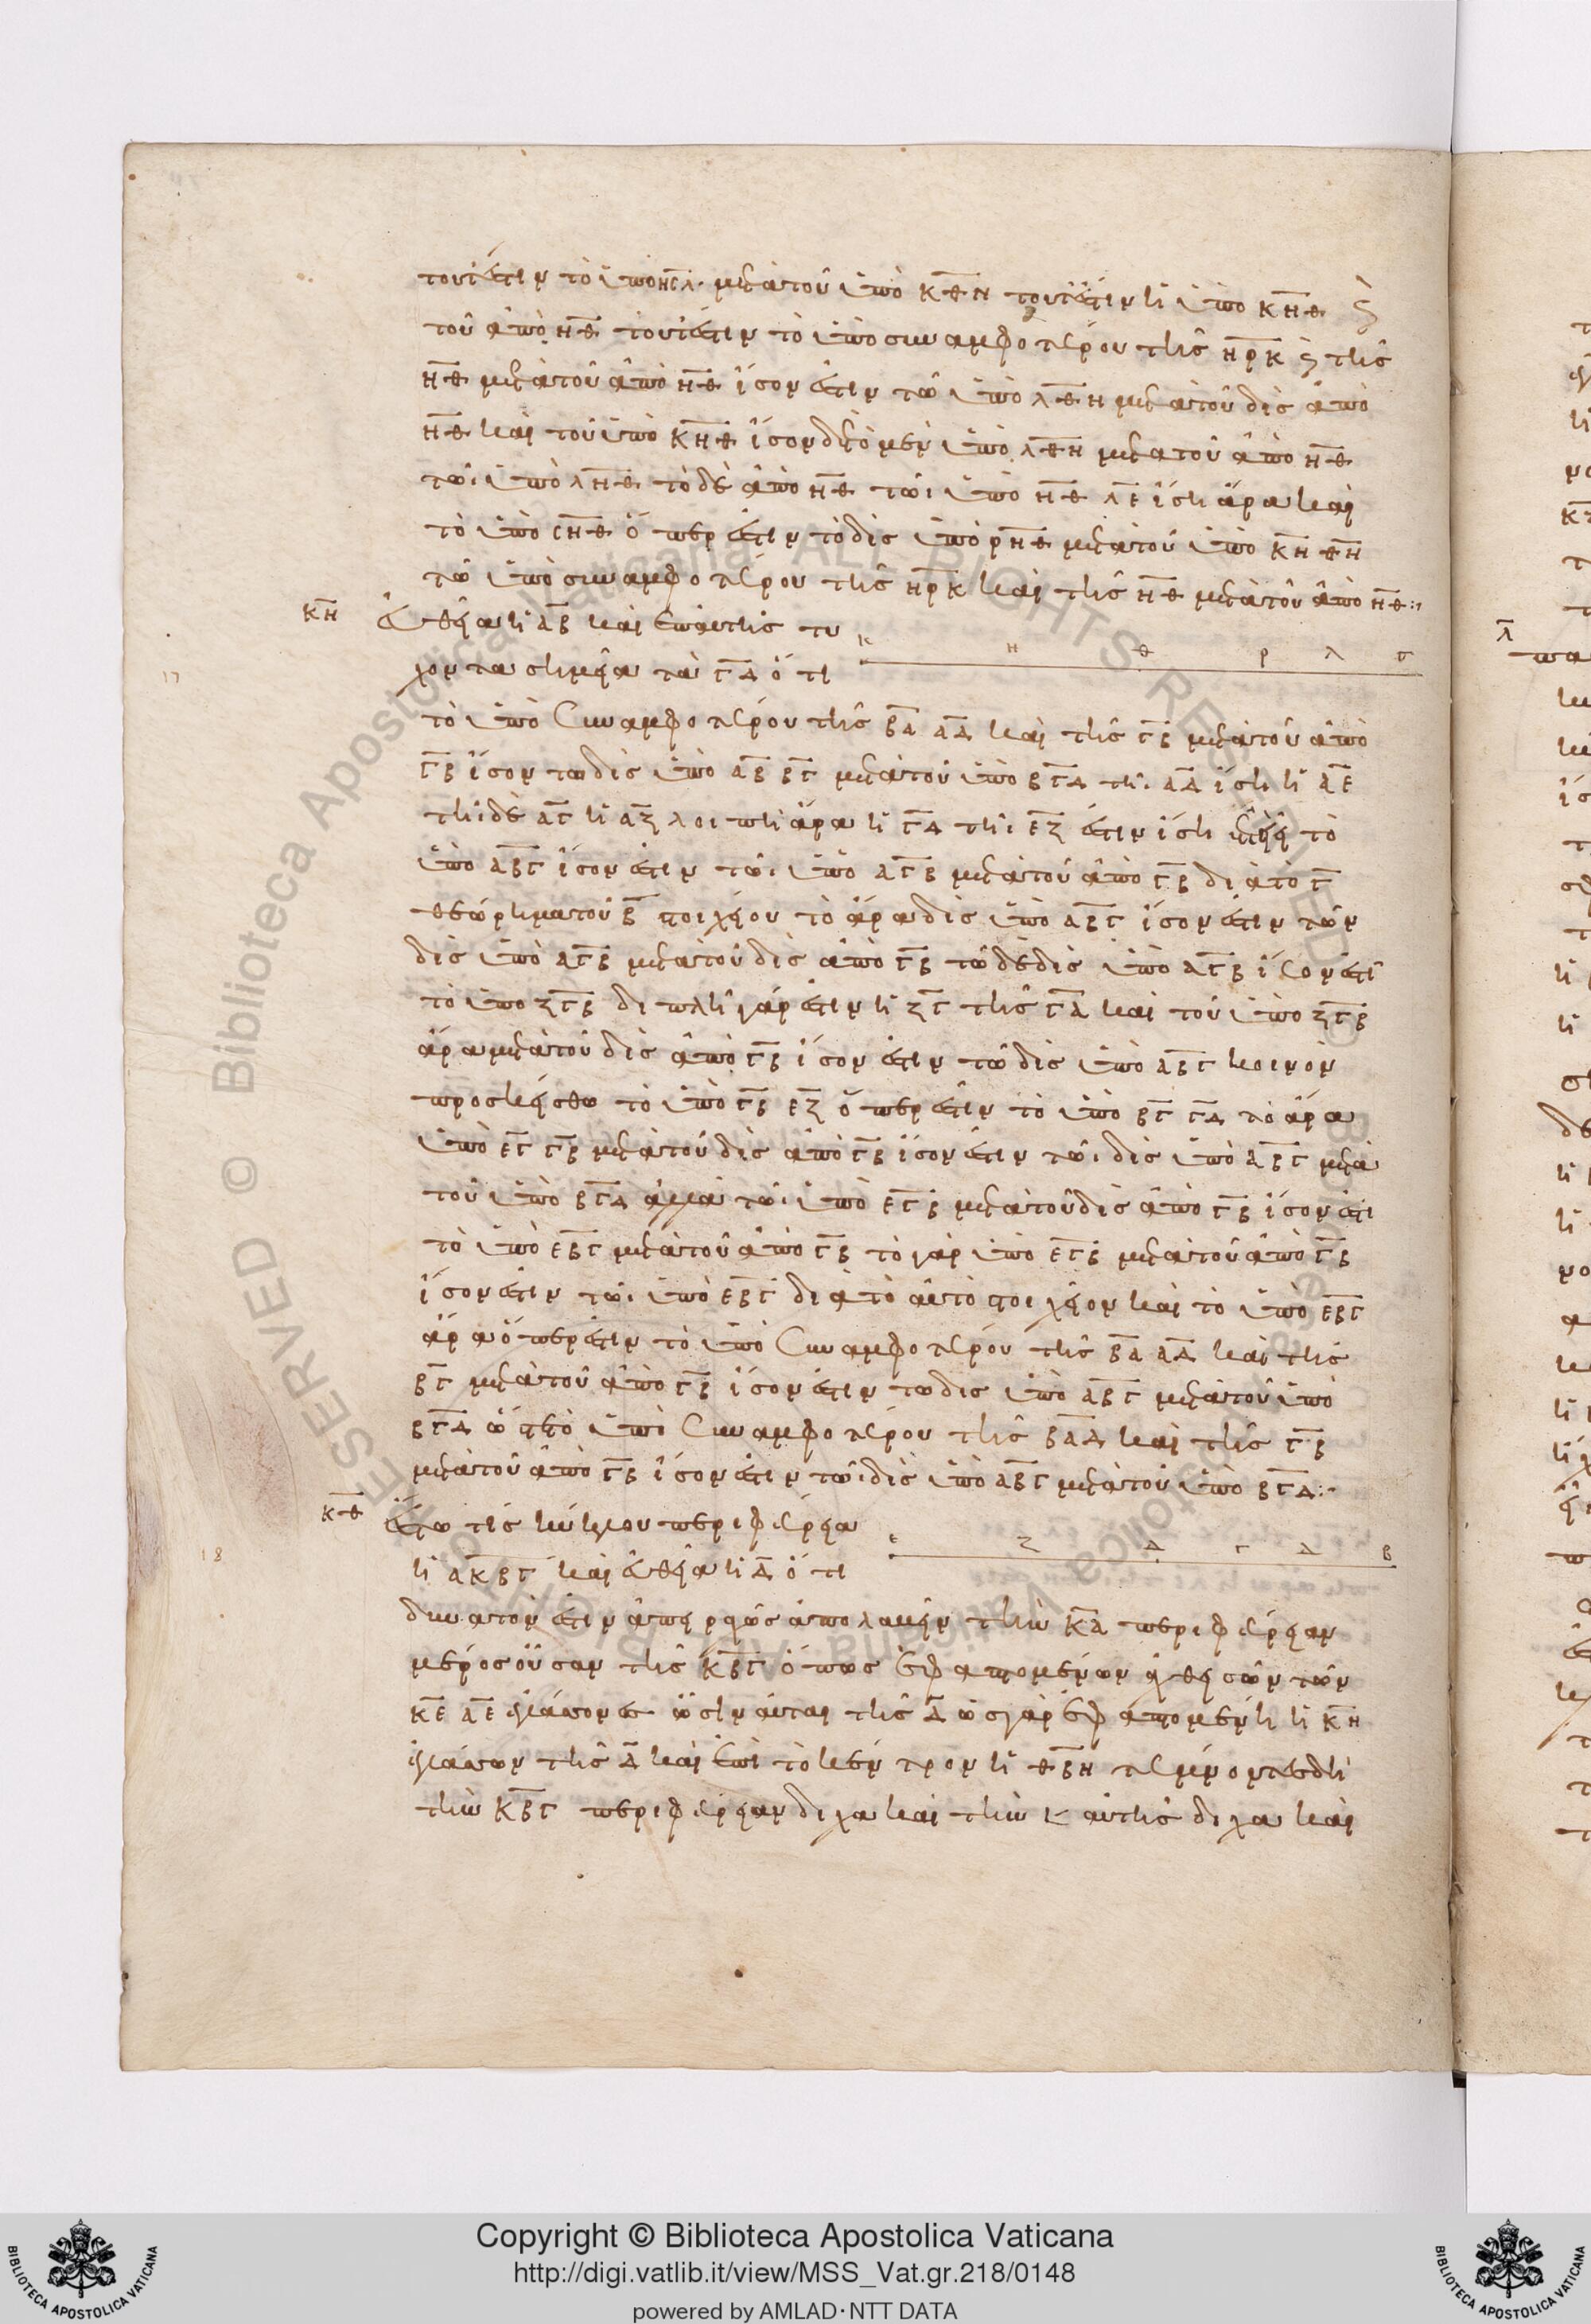 τουτέστιν τὸ ὑπὸ ΗΣΛ μετὰ τοῦ ὑπὸ ΚΘΗ τουτέστιν ἡ ὑπὸ ΚΗΘ καὶ
τοῦ ἀπὸ ΗΘ τουτέστιν τὸ ὑπὸ συναμφοτέρου τῆς ΗΡΚ καὶ τῆς
ΗΘ μετὰ τοῦ ἀπὸ ΗΘ ἴσον ἐστὶν τῶ ὑπὸ ΛΘΗ μετὰ τοῦ δὶς ἀπὸ
ΗΘ καὶ τοῦ ὑπὸ ΚΗΘ ἴσον δὲ τὸ μὲν ὑπὸ ΛΘΗ μετὰ τοῦ ἀπὸ ΗΘ
τῶι ὑπὸ ΛΗΘ τὸ δὲ ἀπὸ ΗΘ τῶι ὑπὸ ΗΘ ΛΕ ἴση ἄρα καὶ
τὸ ὑπὸ ϹΗΘ ὅπερ ἐστὶν τὸ δὶς ὑπὸ ΡΗΘ μετὰ τοῦ ὑπὸ ΚΗ ΘΗ
τῶ ὑπὸ συναμφοτέρου τῆς ΗΡΚ καὶ τῆς ΗΘ μετὰ τοῦ ἀπὸ ΗΘ:
ΚΗ εὐθεῖα ἡ ΑΒ καὶ ἐπ' αὐτῆς τυ
χόντα σημεῖα τὰ ΓΔ ὅτι
Κ Η Θ Ρ Λ Ϲ
τὸ ὑπὸ συναμφοτέρου τῆς ΒΑ ΑΔ καὶ τῆς ΓΒ μετὰ τοῦ ἀπὸ
ΓΒ ἴσον τῶ δὶς ὑπὸ ΑΒ ΒΓ μετὰ τοῦ ὑπὸ ΒΓΔ τῆι ΑΔ ἴση ἡ ΑΕ
τῆι δὲ ΑΓ ἡ ΑΖ λοιπὴ ἄρα ἡ ΓΔ τῆι ΕΖ ἐστὶν ἴση ἐπεὶ τὸ
ὑπὸ ΑΒΓ ἴσον ἐστὶν τῶι ὑπὸ ΑΓΒ μετὰ τοῦ ἀπὸ ΓΒ διὰ τὸ Γ
θεώρημα τοῦ Β στοιχείου τὸ ἄρα δὶς ὑπὸ ΑΒΓ ἴσον ἐστὶν τῶν
δὶς ὑπὸ ΑΓΒ μετὰ τοῦ δὶς ἀπὸ ΓΒ τῶ δὲ δὶς ὑπὸ ΑΓΒ ἴσον ἐστὶ
τὸ ὑπὸ ΖΓΒ διπλῆ γάρ ἐστιν ἡ ΖΓ τῆς ΓΑ καὶ τοῦ ὑπὸ ΖΓΒ
ἄρα μετὰ τοῦ δὶς ἀπὸ ΓΒ ἴσον ἐστὶν τῶ δὶς ὑπὸ ΑΒΓ κοινὸν
προσκείσθω τὸ ὑπὸ ΓΒ ΕΖ ὅπερ ἐστὶν τὸ ὑπὸ ΒΓ ΓΔ τὸ ἄρα
ὑπὸ ΕΓ ΓΒ μετὰ τοῦ δὶς ἀπὸ ΓΒ ἴσον ἐστὶν τῶι δὶς ὑπὸ ΑΒΓ μετὰ
τοῦ ὑπὸ ΒΓΔ ἀλλὰ τῶι ὑπὸ ΕΓΒ μετὰ τοῦ δὶς ἀπὸ ΓΒ ἴσον ἐστὶ
τὸ ὑπὸ ΕΒΓ μετὰ τοῦ ἀπὸ ΓΒ τὸ γὰρ ὑπὸ ΕΓΒ μετὰ τοῦ ἀπὸ ΓΒ
ἴσον ἐστὶν τῶι ὑπὸ ΕΒΓ διὰ τὸ αὐτὸ στοιχεῖον καὶ τὸ ὑπὸ ΕΒΓ
ἄρα ὅπερ ἐστὶν τὸ ὑπὸ συναμφοτέρου τῆς ΒΑ ΑΔ καὶ τῆς
ΒΓ μετὰ τοῦ ἀπὸ ΓΒ ἴσον ἐστὶν τῶ δὶς ὑπὸ ΑΒΓ μετὰ τοῦ ὑπὸ
ΒΓΔ ὥστε τὸ ὑπὸ συναμφοτέρου τῆς ΒΑΔ καὶ τῆς ΓΒ
μετὰ τοῦ ἀπὸ ΓΒ ἴσον ἐστὶν τῶι δὶς ὑπὸ ΑΒΓ μετὰ τοῦ ὑπὸ ΒΓΔ:
ΚΘ ἔστω τις κύκλου περιφέρεια
ἡ ΑΚΒΓ καὶ εὐθεῖα ἡ Δ ὅτι
Ε Ζ Α Γ Δ Β
δυνατὸν ἐστὶν ἀπείρως ἀπολαβεῖν τὴν ΚΑ περιφέρειαν
μέρος οὖσαν τῆς ΚΒΓ ὅπως ἐφαπτομένων ἀχθεισῶν τῶν
ΚΕ ΑΕ ἐλάσσονες ὦσιν αὗται τῆς Δ ὡς γὰρ ἐφαπτομένη ἡ ΚΗ
ἐλάσσων τῆς Δ καὶ ἐπὶ τὸ κέντρον ἡ ΘΒΗ τέμνοντες δὴ
τὴν ΚΒΓ περιφέρειαν δίχα καὶ τὴν Κ αὐτῆς δίχα καὶ
17
18
Copyright © Biblioteca Apostolica Vaticana
http://digi.vatlib.it/view/MSS_Vat.gr.218/0148
powered by AMLAD·NTT DATA
BIBLIOTECA APOSTOLICA VATICANA
BIBLIOTECA APOSTOLICA VATICANA